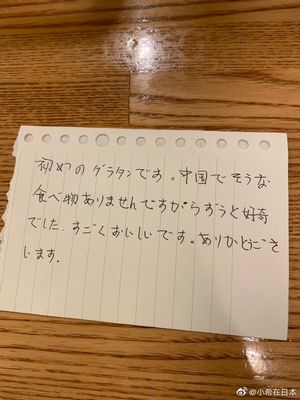 初めのグラタンです。中国でそうな
食べ物ありませんですからずうと好奇
でした.すごくおいしいです。ありかとうごさ
じます.
@小希在日本